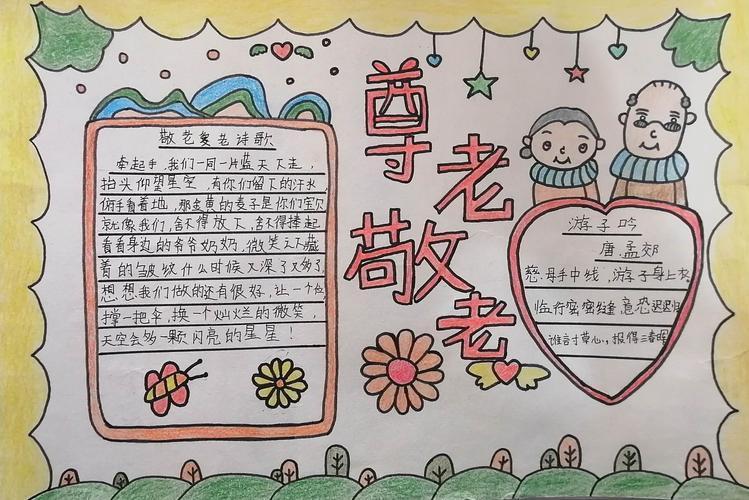 敬老爱老诗歌
牵起手,我们一同一片蓝天下走,
抬头仰望星空,有你们留下的汗水,
俯手看着地,那金黄的麦子是你们宝贝
就像我们,舍不得放下,舍不得捧起
看看身边的爷爷奶奶,微笑下藏
着的皱纹什么时候又深了又多了
想想我们做的还有很好,让一个位
撑一把伞,换一个灿烂的微笑,
天空会多一颗闪亮的星星!
尊老
敬老
游子吟
唐 孟郊
慈母手中线,游子身上衣
临行密密缝,意恐迟迟归
谁言寸草心,报得三春晖